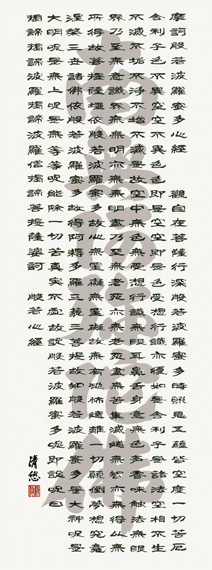 摩訶般若波羅蜜多心經 觀自在菩薩行深般若波羅蜜多時照見五蘊皆空度一切苦厄
舍利子色不異空空不異色色即是空空即是色受想行識亦復如是舍利子是諸法空相不生
不滅不垢不淨不增不減是故空中無色無受想行識無眼耳鼻舌身意無色聲香味觸法無眼
界乃至無意識界無無明亦無無明盡乃至無老死亦無老死盡無苦集滅道無智亦無得以無
所得故菩提薩埵依般若波羅蜜多故心無罣礙無罣礙故無有恐怖遠離一切顛倒夢想究竟
涅槃三世諸佛依般若波羅蜜多故得阿耨多羅三藐三菩提故知般若波羅蜜多是大神呪是
大明呪是無上呪是無等等呪能除一切苦真實不虛故說般若波羅蜜多呪即說呪曰
揭諦揭諦波羅揭諦波羅僧揭諦菩提薩婆訶 般若心經
南無阿彌陀佛